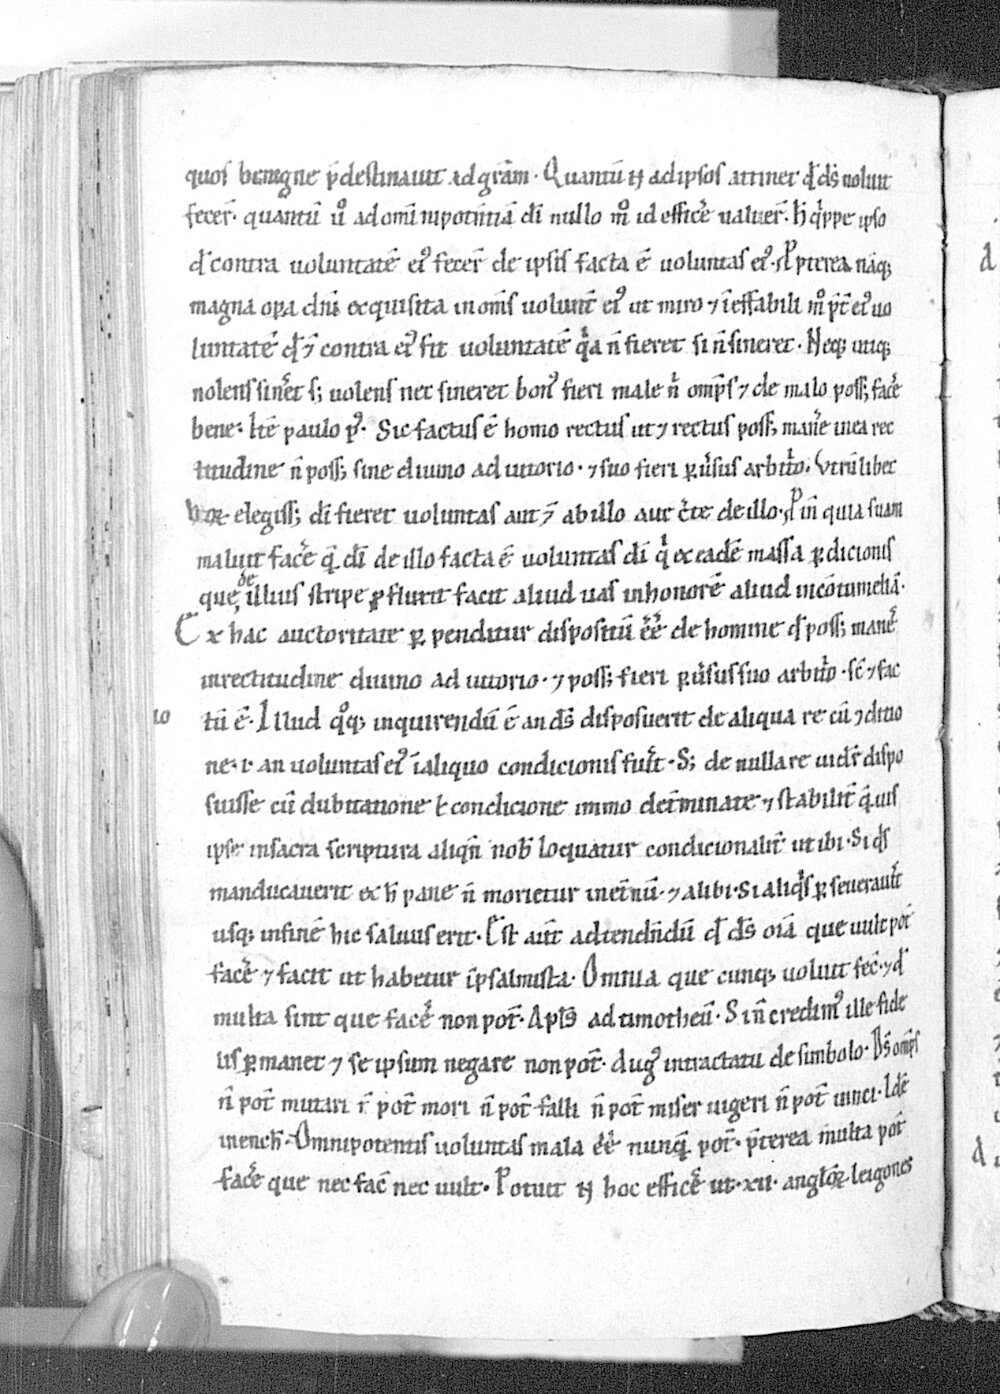 quos benigne p̄destinauit ad gr̄am. Quantū .n. ad ipsos attinet qd̓ ds̄ noluit
fecer̄. quantū ů ad omīnipotentiā dī nullo m̊ id effice᷒ ualuer̄. h̄ q̓ppe ipso
qd̓ contra uoluntatē ei᷒ fecer̄ de ipsis facta ē uoluntas ei᷒. Pp̄terea nāq;
magna opa dn̄i exquisita in om̄s uolunt̄ ei᷒ ut miro ⁊ īeffabili m̊ p̄t̄ ei᷒ uo
luntatē qd̓ ⁊ contra ei᷒ fit uoluntatē q̓a n̄ fieret si n̄ sineret. Neq; utiq;
nolens sin̄et s; uolens nec sineret bon᷒ fieri male n̄ omp̄s ⁊ de malo poss; face᷒
bene. Itē paulo p᷒. Sic factus ē homo rectus ut ⁊ rectus poss; mane᷒ in ea rec
titudine n̄ poss; sine diuino adiutorio. ⁊ suo fieri ꝑu̓sus arbit̓o. Vtrūlibet
elegiss; dī fieret uoluntas aut ⁊ ab illo aut c̓te de illo. P in̄ quia suam
maluit face᷒ q̄ dī de illo facta ē uoluntas dī q̓ ex eadē massa ꝑdicionis
que de illius stripe ꝓfluxit facit aliud uas in honorē aliud in cōtumeliā.
Ex hac auctoritate ꝑpenditur dispositū ēē de homine qd̓ poss; mane᷒
in rectitudine diuino adiutorio. ⁊ poss; fieri ꝑu̓sus suo arbit̓o. sic̄ ⁊ fac
tū ē. Illud q̊q; inquirendū ē an ds̄ disposuerit de aliqua re cū ⁊ditio
ne. i. an uoluntas ei᷒ ī aliquo condicionis fu̓it. S; de nulla re uidet᷒ dispo
suisse cū dubitatione ł condicione immo det̄minate ⁊ stabilit̄ q̄uis
ipse in sacra scriptura aliqn̄ nob̄ loquatur condicionalit̄ ut ibi. Si q̓s
manducauerit ex h̄ pane n̄ morietur in et̄nū. ⁊ alibi. Si aliq̓s ꝑseuerau̓it
usq; in finē hic saluus erit. Est aut̄ adtendendū qd̓ ds̄ oīa que uult pot̄
face᷒ ⁊ facit ut habetur ī psalmista. Omnia que cunq; uoluit fec̄. ⁊ qd̓
multa sint que face᷒ non pot̄. Apl̄s ad timotheū. Si n̄ credim᷒ ille fide
lis ꝑmanet ⁊ se ipsum negare non pot̄. Aug᷒ in tractatu de simbolo. Ds̄ omp̄s
n̄ pot̄ mutari n̄ pot̄ mori n̄ pot̄ falli n̄ pot̄ miser uigeri n̄ pot̄ uinci. Idē
in ench̄. Omnipotentis uoluntas mala ēē nunq̄ pot̄. p̄terea multa pot̄
face᷒ que nec fac̄ nec uult. Potuit .n. hoc effice᷒ ut .xii. angl̓oꝝ leigones